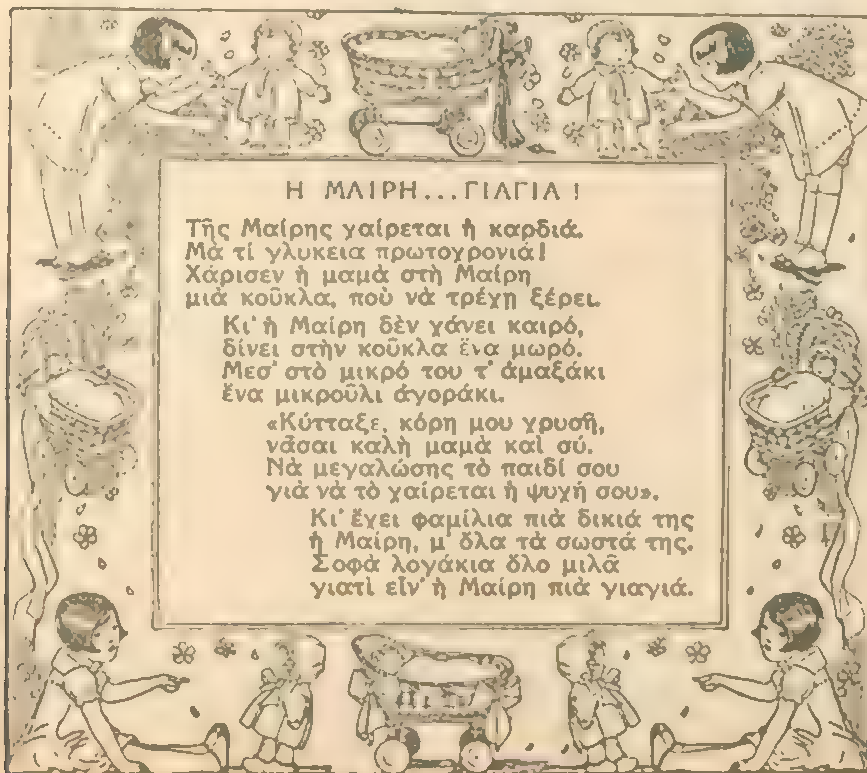 Η ΜΑΙΡΗ...ΓΙΑΓΙΑ!
Τῆς Μαίρης χαίρεται ἡ καρδιά.
Μὰ τί γλυκεια πρωτοχρονιά!
Χάρισεν ἡ μαμὰ στὴ Μαίρη
μιὰ κοῦκλα, ποὺ νὰ τρέχη ξέρει.
Κι' ἡ Μαίρη δὲν χάνει καιρό,
δίνει στὴν κοῦκλα ἕνα μωρό.
Μεσ' στὸ μικρό του τ' ἁμαξάκι
ἕνα μικροῦλι ἀγοράκι.
«Κύτταξε, κόρη μου χρυσῆ,
νᾶσαι καλὴ μαμὰ καὶ σύ.
Νὰ μεγαλώσης τὸ παιδί σου
γιὰ νὰ τὸ χαίρεται ἡ ψυχή σου».
Κι' ἔχει φαμίλια πιὰ δικιά της
ἡ Μαίρη, μ' ὅλα τὰ σωστά της.
Σοφὰ λογάκια ὅλο μιλᾶ
γιατὶ εἶν' ἡ Μαίρη πιὰ γιαγιά.